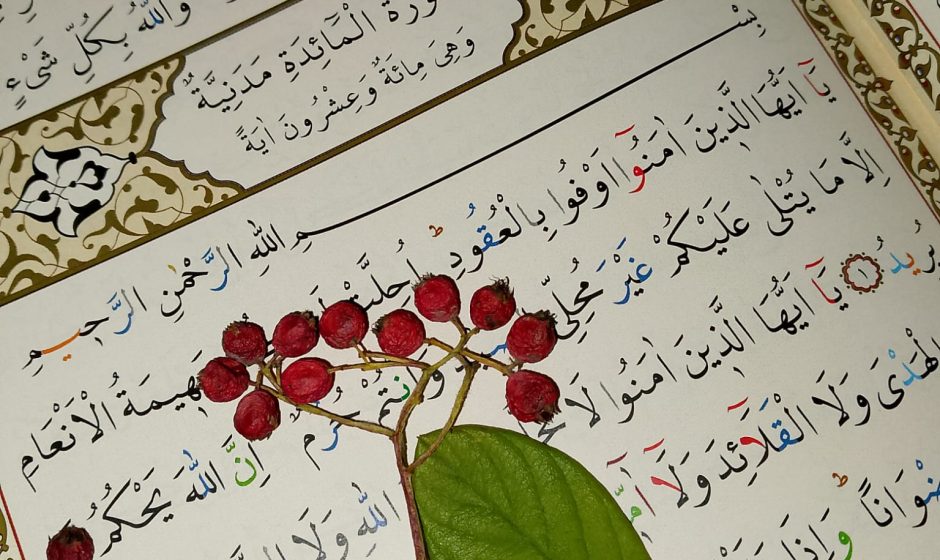 وَاللّٰهُ بِكُلِّ شَيْءٍ
سُورَةُ الْمَائِدَةِ مَدَنِيَّةٌ
وَهِيَ مِائَةٌ وَعِشْرُونَ اٰيَةً
بِسْمِ اللّٰهِ الرَّحْمٰنِ الرَّحِيمِ
يَآ اَيُّهَا الَّذِينَ اٰمَنُٓوا اَوْفُوا بِالْعُقُودِ اُحِلَّتْ بَهِيمَةُ الْاَنْعَامِ
اِلَّا مَا يُتْلٰى عَلَيْكُمْ غَيْرَ مُحِلِّي وَاَنْتُمْ حُرُمٌ اِنَّ اللّٰهَ يَحْكُمُ
يُرِيدُ ﴿١﴾ يَآ اَيُّهَا الَّذِينَ اٰمَنُوا لَا اللّٰهِ وَلَا
الْهَدْيَ وَلَا الْقَلَٓائِدَ وَلَٓا
وَاِذَا